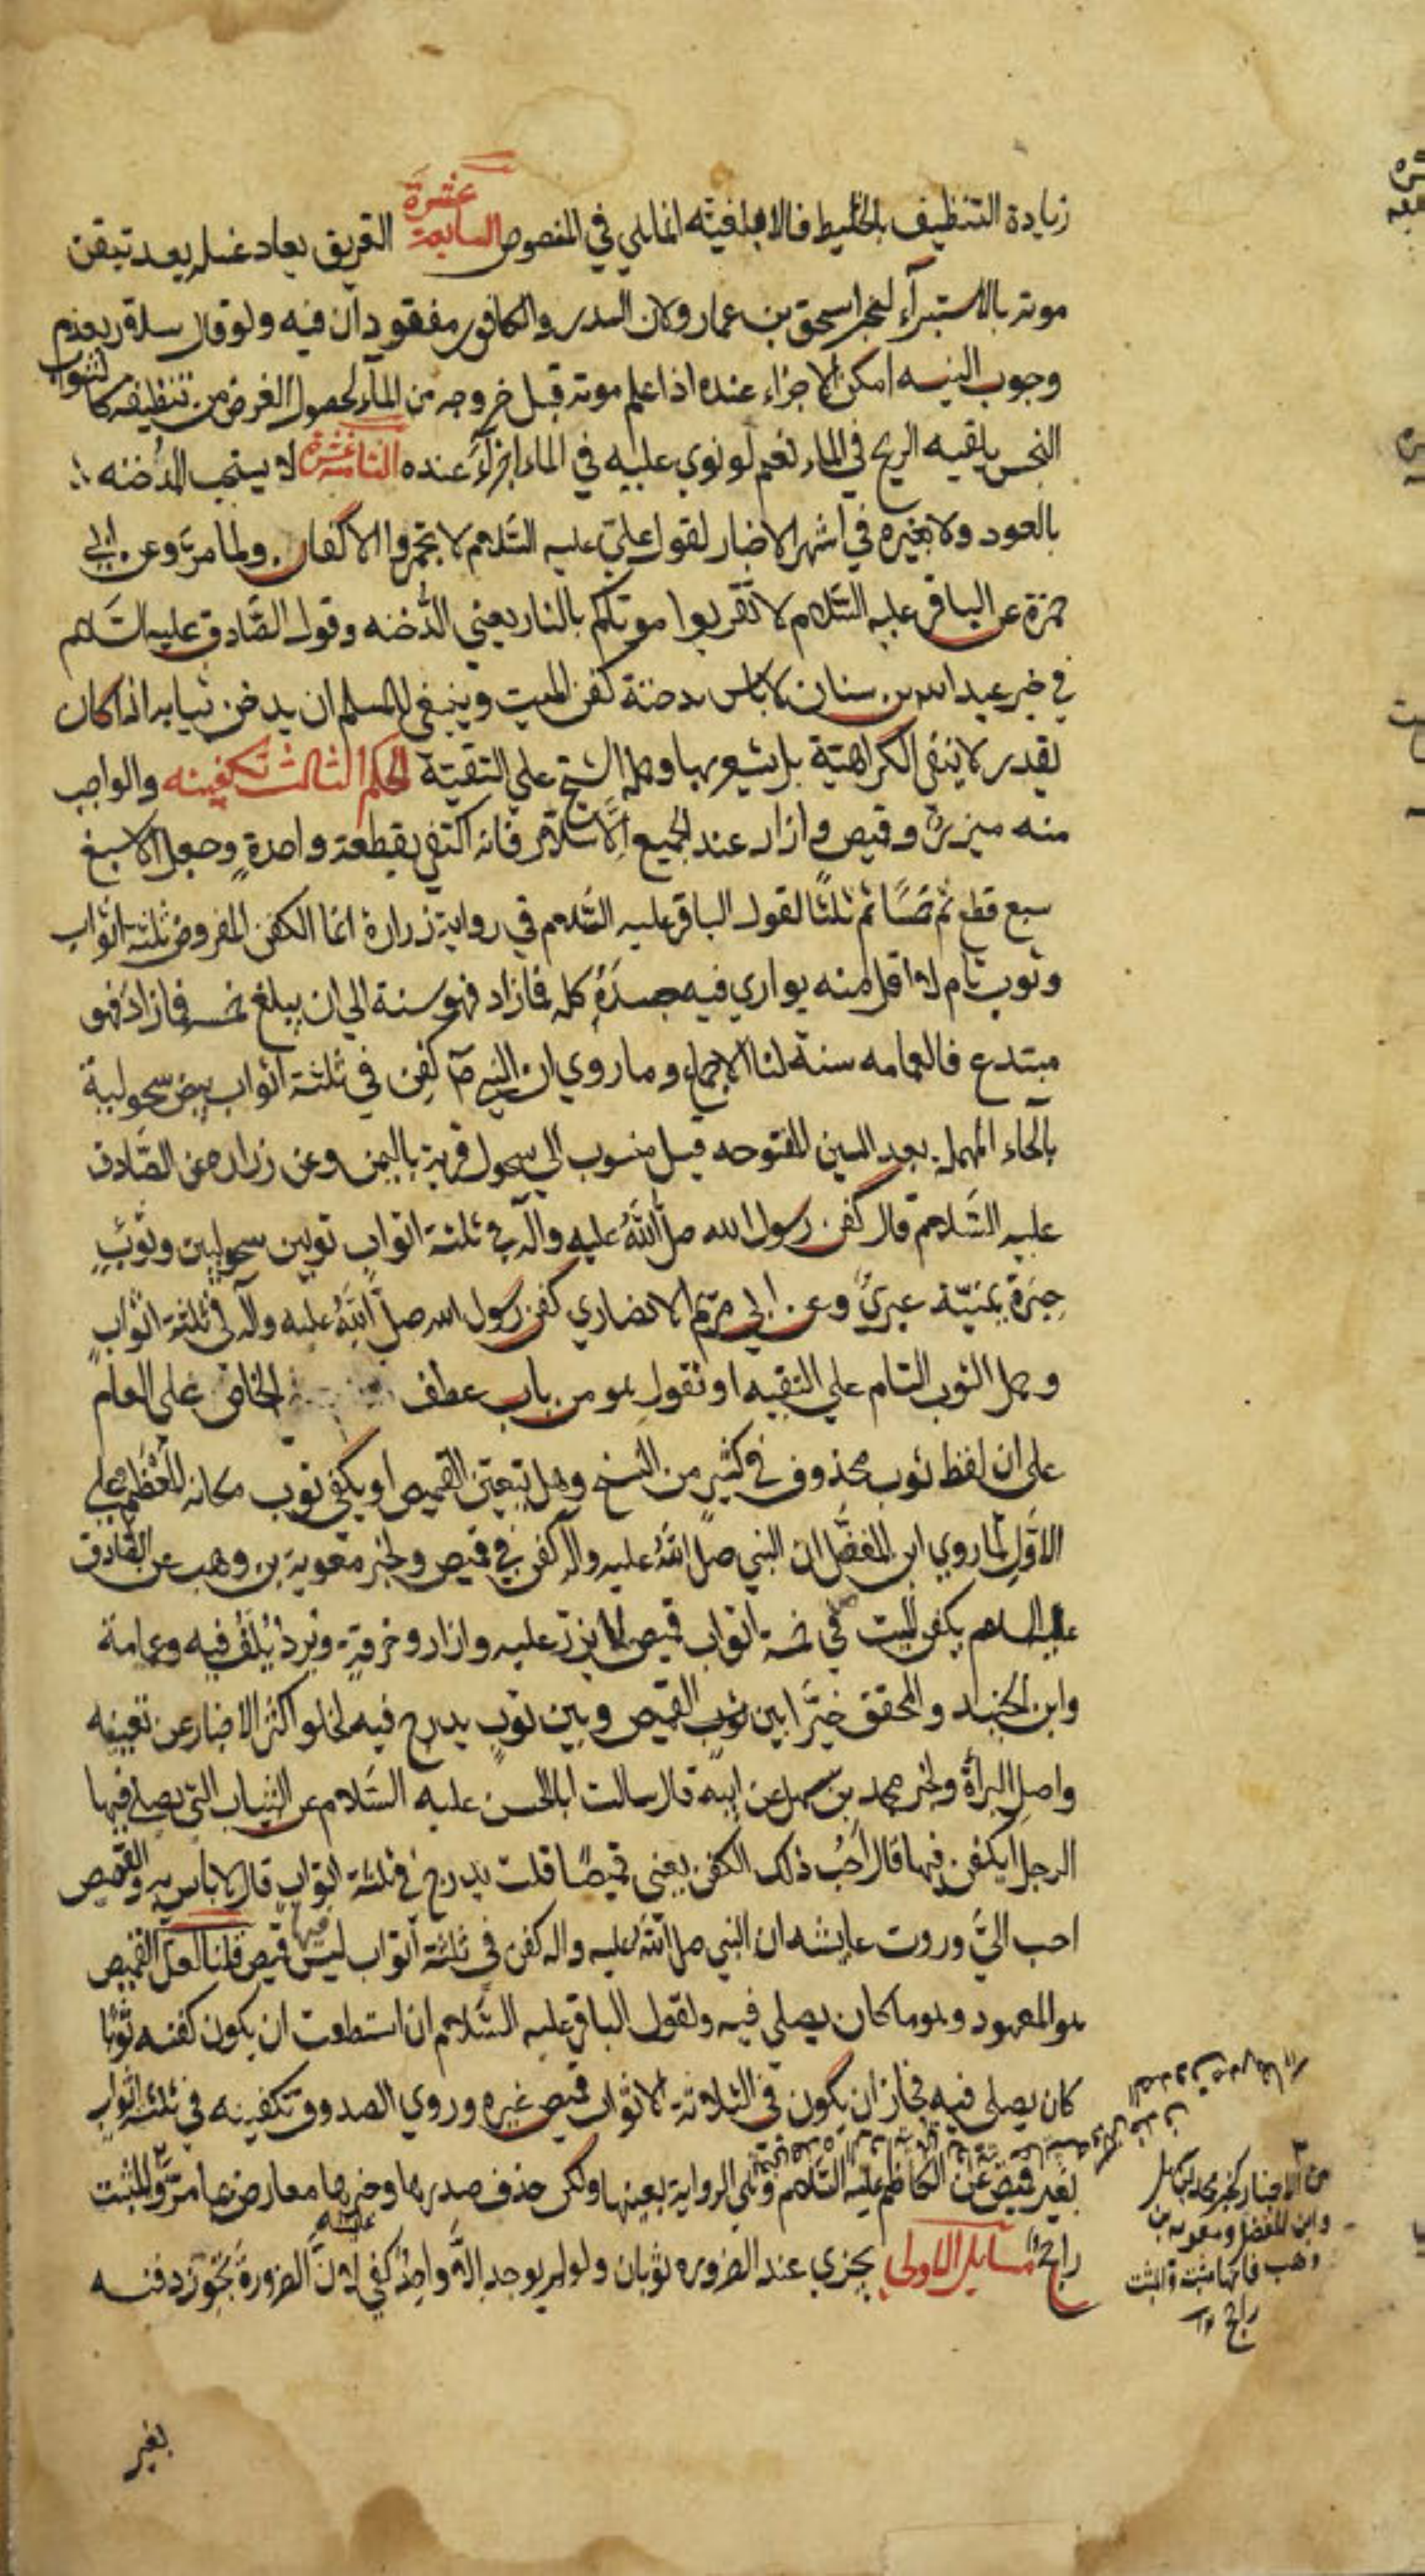 زيادة التنظيف بالخليط فالافضلية انما هي في المنصوص السابعة عشرة الغريق يعاد غسله بعد تيقن
موته بالاستبراء لخبر اسحق بن عمار ولان السدر والكافور مفقودان فيه ولو قال سلار بعدم
وجوب النيه امكن الاجزاء عنده اذا علم موته قبل خروجه من الماء لحصول الغرض من تنظيفه كالثوب
النجس يلقيه الريح في الماء نعم لو نوي عليه في الماء اجزاء عنده الثامنة عشرة لا يستحب الدخنه
بالعود ولا بغيره في اشهر الاخبار لقول علي عليه السلام لا تجمروا الاكفان ولما مر وعن ابي
حمزة عن الباقر عليه السلام لا تقربوا موتاكم بالنار يعني الدخنه وقول الصادق عليه السلام
في خبر عبد الله بن سنان لا باس بدخنة كفن الميت وينبغي للمسلم ان يدخن ثيابه اذا كان
يقدر لا ينفي الكراهية بل يشعر بها وحمله الشيخ علي التقية الحكم الثالث تكفينه والواجب
منه ميزر وقميص وازار عند الجميع الا سلار فانه اكتفي بقطعة واحدة وجعل الاسبغ
سبع قطع ثم خمسا ثم ثلثا لقول الباقر عليه السلام في رواية زرارة انما الكفن المفروض ثلثة اثواب
وثوب تام لا اقل منه يواري فيه جسده كله فما زاد فهو سنة الي ان يبلغ خمسه فما زاد فهو
مبتدع فالعمامه سنة لنا الاجماع وما روي ان النبي ص كفن في ثلثة اثواب بيض سحولية
بالحاء المهملة بعد السين المفتوحه قيل منسوب الي سحول قرية باليمن وعن زراره عن الصادق
عليه السلام قال كفن رسول الله صلى الله عليه وآله في ثلثة اثواب ثوبين سحوليين وثوب
حبرة يمنية عبري وعن ابي مريم الانصاري كفن رسول الله صلى الله عليه وآله في ثلثة اثواب
وحمل الثوب التام علي التقيه او نقول هو من باب عطف الخاص علي العام
علي ان لفظ ثوب محذوف في كثير من النسخ وهل يتعين القميص او يكفي ثوب مكانه المعظم علي
الاول لما روي ابن المغفل ان النبي صلى الله عليه وآله كفن في قميص ولخبر معوية بن وهب عن الصادق
عليه السلام يكفن الميت في خمسة اثواب قميص لا يزر عليه وازار وخرقة وبرد يلف فيه وعمامة
وابن الجنيد والمحقق خيرا بين ثوب القميص وبين ثوب يدرج فيه لخلو اكثر الاخبار عن تعيينه
واصل البرأة ولخبر محمد بن سهل عن ابيه قال سالت ابا الحسن عليه السلام عن الثياب التي يصلي فيها
الرجل ايكفن فيها قال احب ذلك الكفن يعني قميصا قلت يدرج في ثلثة اثواب قال لا باس به والقميص
احب الي وروت عايشه ان النبي صلى الله عليه واله كفن في ثلثة اثواب ليس فيها قميص قلنا لعل القميص
هو المعهود وهو ما كان يصلي فيه ولقول الباقر عليه السلام ان استطعت ان يكون كفنه ثوبا
كان يصلي فيه فجاز ان يكون في الثلاثة الاثواب قميص غيره وروي الصدوق تكفينه في ثلثة اثواب
بغير قميص عن الكاظم عليه السلام وهي الرواية بعينها ولكن حذف صدرها وخبرها معارض بما مر والمثبت
راجح مسايل الاولي يجزي عند الضروره ثوبان ولو لم يوجد الا واحد كفي لان الضرورة تجوز دفنه
من الاخبار كخبر محمد بن سهل
وابن المغفل ومعوية بن
وهب فانها مثبتة والمثبت
راجح
بغير